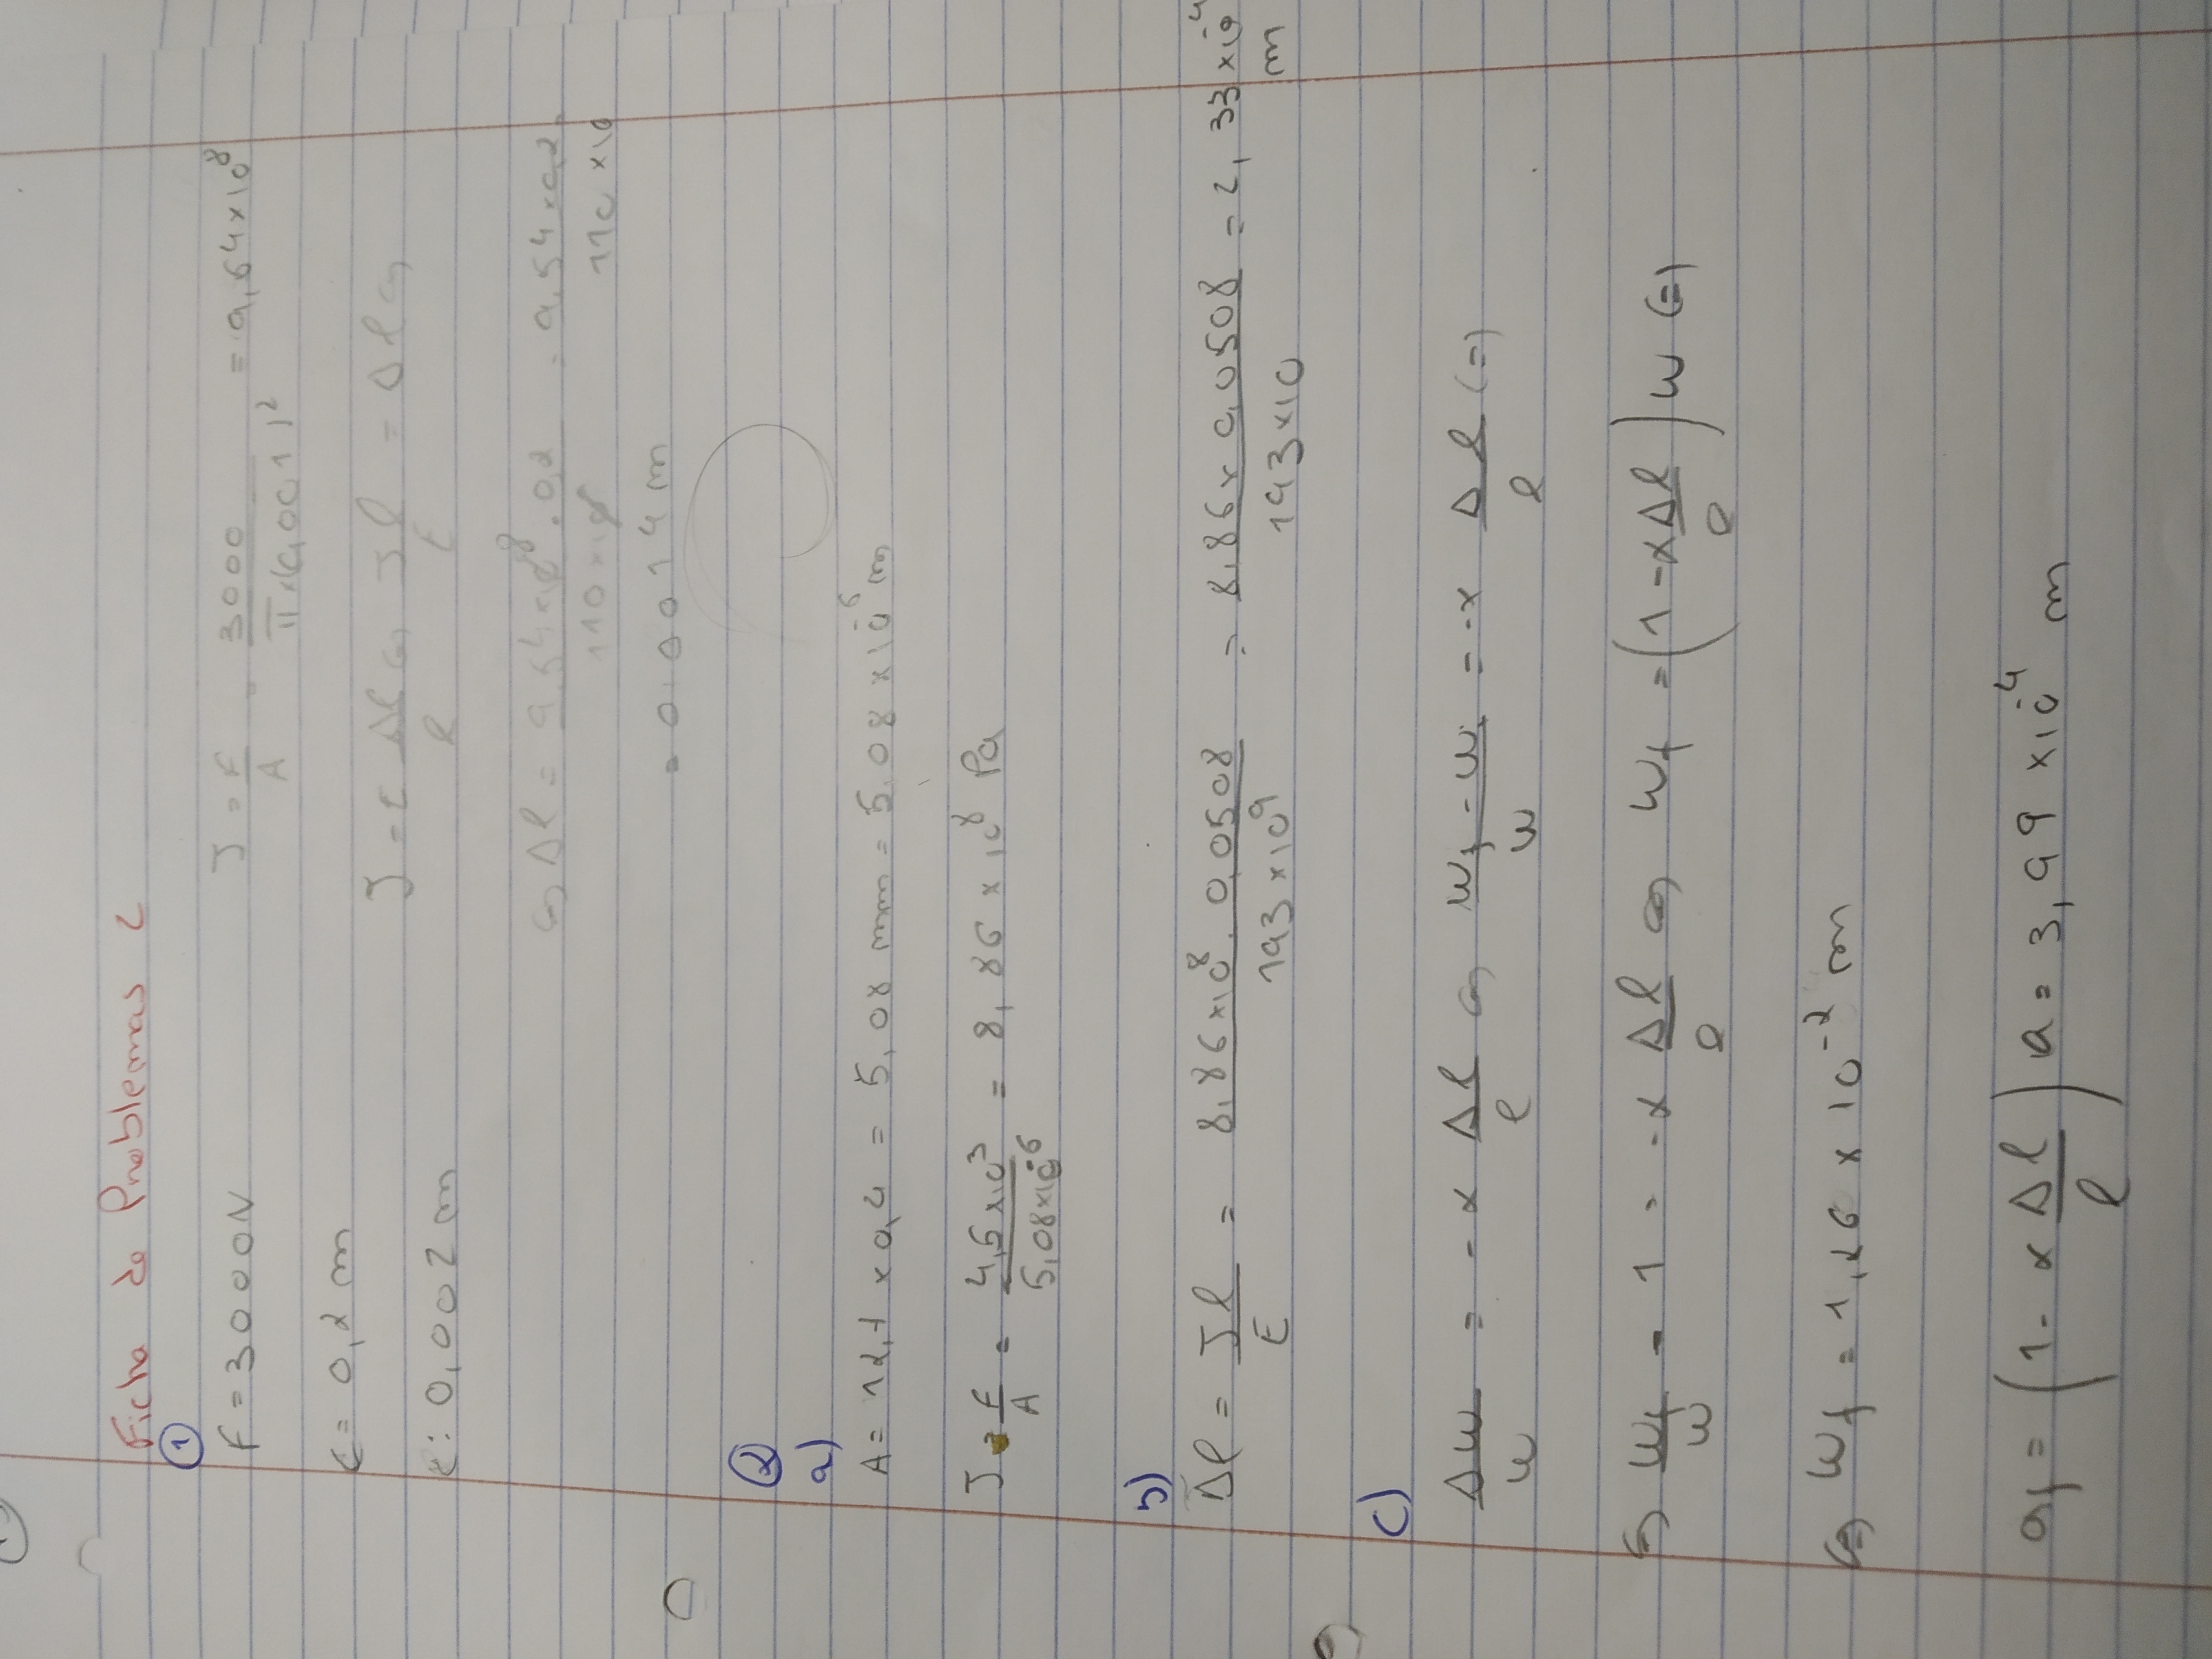 Ficha de Problemas 2
①
F = 3000N
J = F/A = 3000/(π×(0,001)²) = 9,54×10⁸
ℓ = 0,2 m
J = E Δℓ/ℓ ⇔ Jℓ/E = Δℓ ⇔
0,002 m
⇔ Δℓ = 9,54×10⁸ · 0,2 / 110×10⁹ = 9,54×0,2 / 110×10
= 0,0014 m
②
a)
A = 12,7 × 0,4 = 5,08 mm = 5,08 × 10⁻⁶ m
J = F/A = 4,5×10³/5,08×10⁻⁶ = 8,86 × 10⁸ Pa
b)
Δℓ = Jℓ/E = 8,86×10⁸ · 0,0508 / 193×10⁹ = 8,86×0,0508 / 193×10 = 2,33×10⁻⁴ m
c)
Δw/w = -x Δℓ/ℓ ⇔ (wf - w)/w = -x Δℓ/ℓ (=)
⇔ wf/w - 1 = -x Δℓ/ℓ ⇔ wf = (1 - x Δℓ/ℓ) w (=)
(=) wf = 1,26 × 10⁻² m
af = (1 - x Δℓ/ℓ) a = 3,99 × 10⁻⁴ m